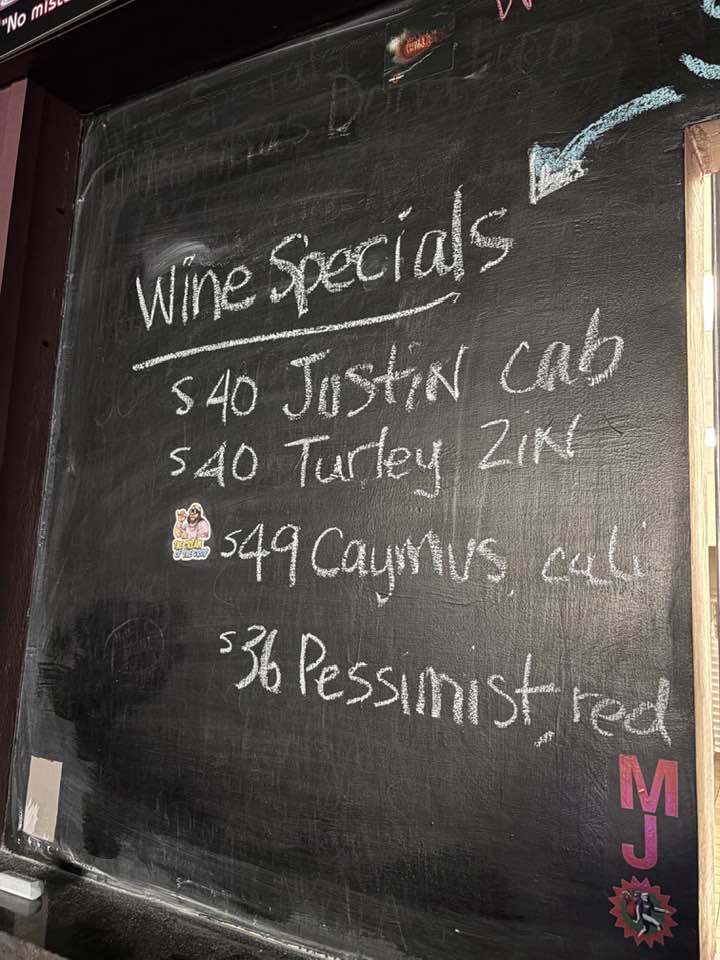 "No mist
Wine Specials
$40 Justin Cab
$40 Turley Zin
$49 Caymus, cali
$36 Pessimist, red
MJ